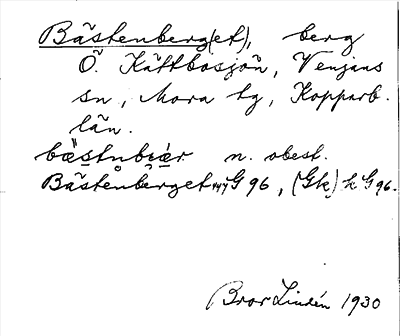 Bästenberg(et), berg
Ö. Kättbosjön, Venjans
sn, Mora tg, Kopparb.
län.
bæstnbær n. obest.
Bästenberget G 96, (Gk) k G 96.
Bror Lindén 1930